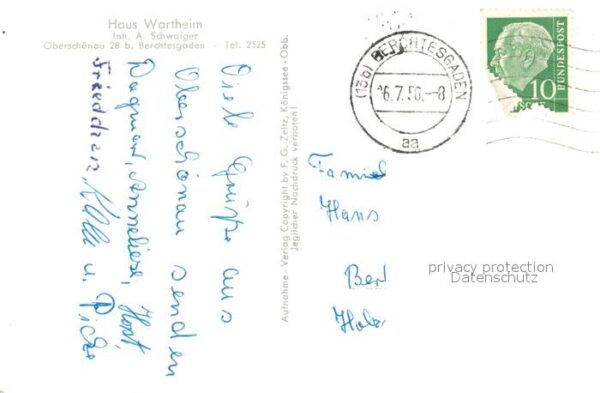 Haus Wartheim
Inh. A. Schwaiger
Oberschönau 28 b. Berchtesgaden - Tel. 2525
Viele Grüße aus
Oberschönau senden
Dagmar, Anneliese, Horst,
u.
Aufnahme - Verlag Copyright by F. G. Zeitz, Königssee - Obb.
Jeglicher Nachdruck verboten!
(13b) BERCHTESGADEN
6.7.56.-8
aa
10
DEUTSCHE
BUNDESPOST
Famil
Hans
Ber
Holz
privacy protection
Datenschutz